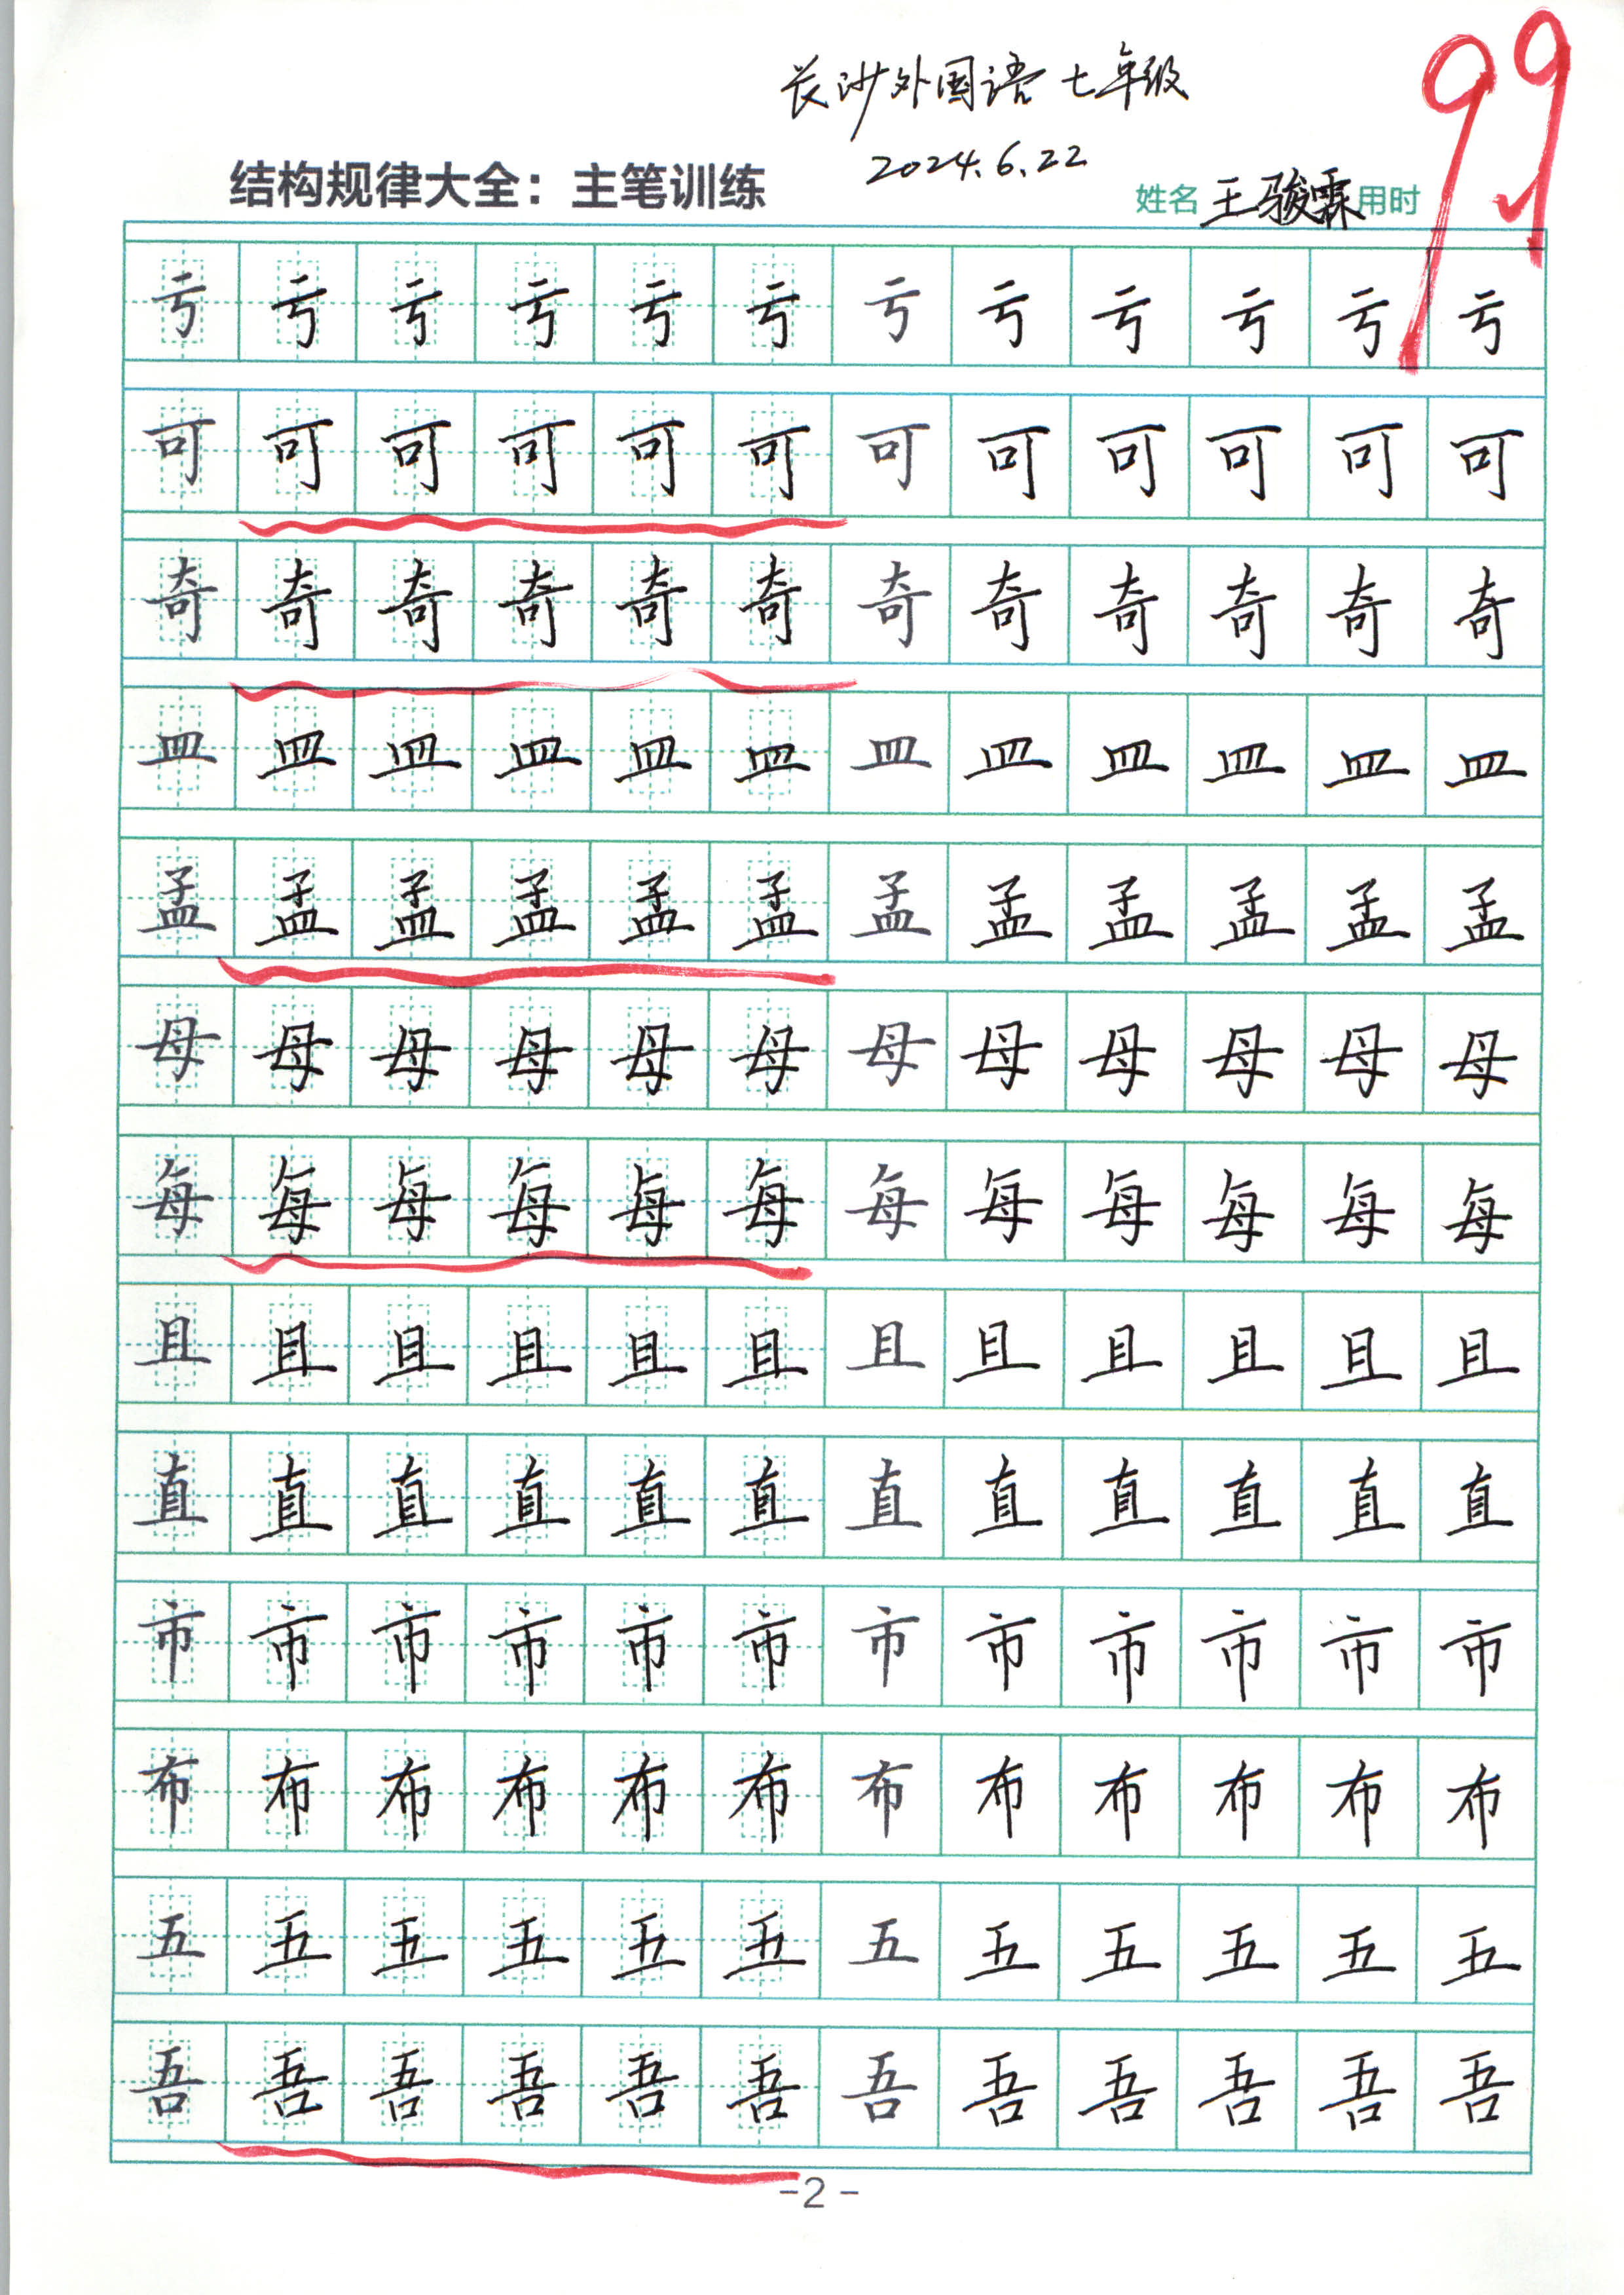 长沙外国语 七年级
99
2024.6.22
结构规律大全：主笔训练
姓名 王骏霖 用时
亏 亏 亏 亏 亏 亏 亏 亏 亏 亏 亏 亏
可 可 可 可 可 可 可 可 可 可 可 可
奇 奇 奇 奇 奇 奇 奇 奇 奇 奇 奇 奇
皿 皿 皿 皿 皿 皿 皿 皿 皿 皿 皿 皿
孟 孟 孟 孟 孟 孟 孟 孟 孟 孟 孟 孟
母 母 母 母 母 母 母 母 母 母 母 母
每 每 每 每 每 每 每 每 每 每 每 每
且 且 且 且 且 且 且 且 且 且 且 且
直 直 直 直 直 直 直 直 直 直 直 直
市 市 市 市 市 市 市 市 市 市 市 市
布 布 布 布 布 布 布 布 布 布 布 布
五 五 五 五 五 五 五 五 五 五 五 五
吾 吾 吾 吾 吾 吾 吾 吾 吾 吾 吾 吾
-2-